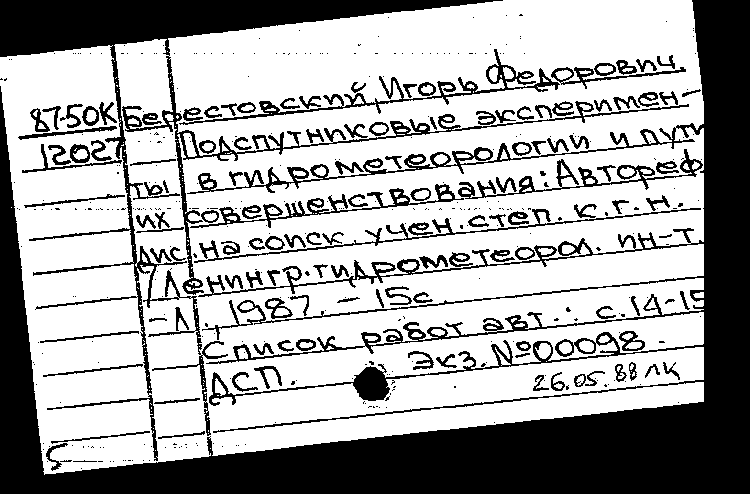 87-50К Берестовский, Игорь Федорович.
12027 Подспутниковые эксперимен-
ты в гидрометеорологии и пути
их совершенствования: Автореф.
дис. на соиск. учен. степ. к.г.н.
/Ленингр. гидрометеорол. ин-т.
- Л., 1987. - 15с.
Список работ авт.: с. 14-15
ДСП. Экз. №00098.
26.05.88 ЛК